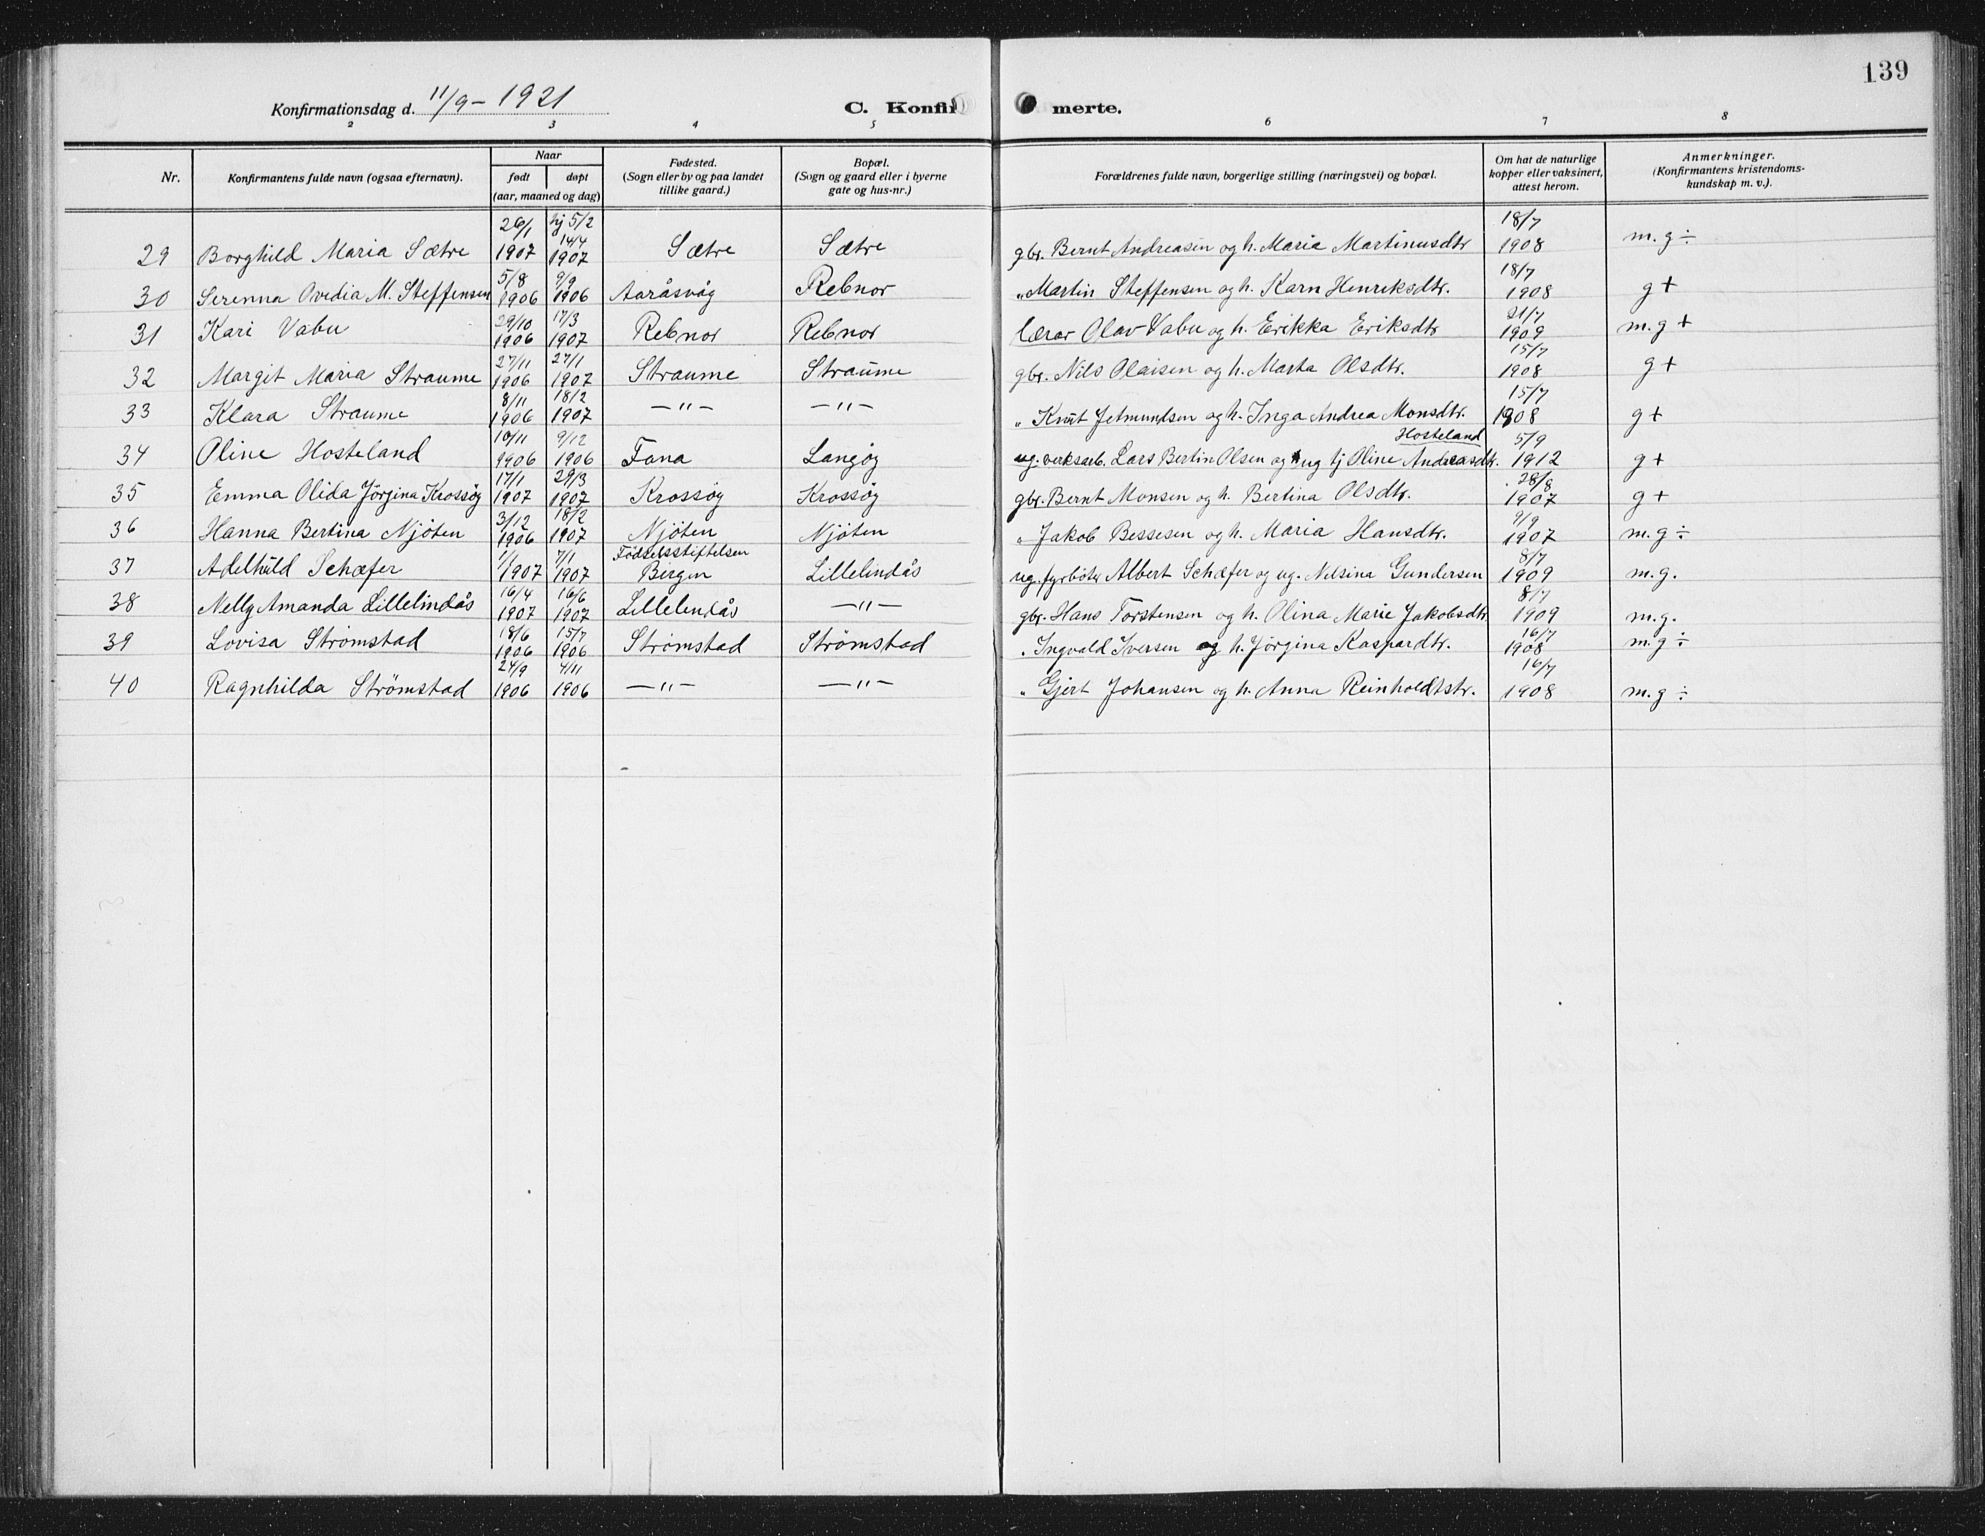 139
Konfirmationsdag d. 11/9 - 1921 C. Konfir merte.
2 3 4 5 6 7 8
Nr. Konfirmantens fulde navn (ogsaa efternavn). Naar født døpt (aar, maaned og dag) Fødested. (Sogn eller by og paa landet tillike gaard.) Bopæl. (Sogn og gaard eller i byerne gate og hus-nr.) Forældrenes fulde navn, borgerlige stilling (næringsvei) og bopæl. Om hat de naturlige kopper eller vaksinert, attest herom. Anmerkninger. (Konfirmantens kristendoms-kundskap m. v.).
29 Borghild Maria Sætre 26/1 1907 hj 5/2 14/4 1907 Sætre Sætre gbr. Bernt Andreasen og h. Maria Martinusdtr 18/7 1908 m.g ÷
30 Serenna Ovedia M. Steffensen 5/8 1906 9/9 1906 Aaråsvåg Rebnor " Martin Steffensen og h. Karn Henriksdtr. 18/7 1908 g +
31 Kari Vabu 29/10 1906 17/3 1907 Rebnor Rebnor lærar Olav Vabu og h. Erikka Eriksdtr 21/7 1909 m.g +
32 Margit Maria Straume 27/11 1906 27/1 1907 Straume Straume gbr. Nils Olaisen og h. Marta Olsdtr. 15/7 1908 g +
33 Klara Straume 8/11 1906 18/2 1907 — " — — " — " Knut Jetmundsen og h. Inga Andrea Monsdtr. 15/7 1908 g +
34 Oline Hosteland 10/11 1906 9/12 1906 Fana Langöy ug. verksarb. Lars Bertin Olsen og ug tj Oline Andreasdtr. Hosteland 5/9 1912 g +
35 Emma Olida Jörgina Krossöy 17/1 1907 29/3 1907 Krossöy Krossöy gbr. Bernt Monsen og h. Bertina Olsdtr. 28/8 1907 g +
36 Hanna Bertina Njöten 3/12 1906 18/2 1907 Njöten Njöten " Jakob Bessesen og h. Maria Hansdtr. 9/9 1907 m.g ÷
37 Adelhild Schæfer 1/1 1907 7/1 1907 Födselsstiftelsen Bergen Lillelindås ug. fyrböter Albert Schæfer og ug. Nelsina Gundersen 8/7 1909 m.g.
38 Nelly Amanda Lillelindås 16/4 1907 16/6 1907 Lillelindås — " — gbr. Hans Torstensen og h. Olina Marie Jakobsdtr 8/7 1909 m.g.
39 Lovisa Strömstad 18/6 1906 15/7 1906 Strömstad Strömstad " Ingvald Iversen og h. Jörgina Kaspardtr. 16/7 1908 m.g ÷
40 Ragnhilda Strömstad 24/9 1906 4/11 1906 — " — — " — " Gjert Johansen og h. Anna Reinholdtstr. 16/7 1908 m.g ÷